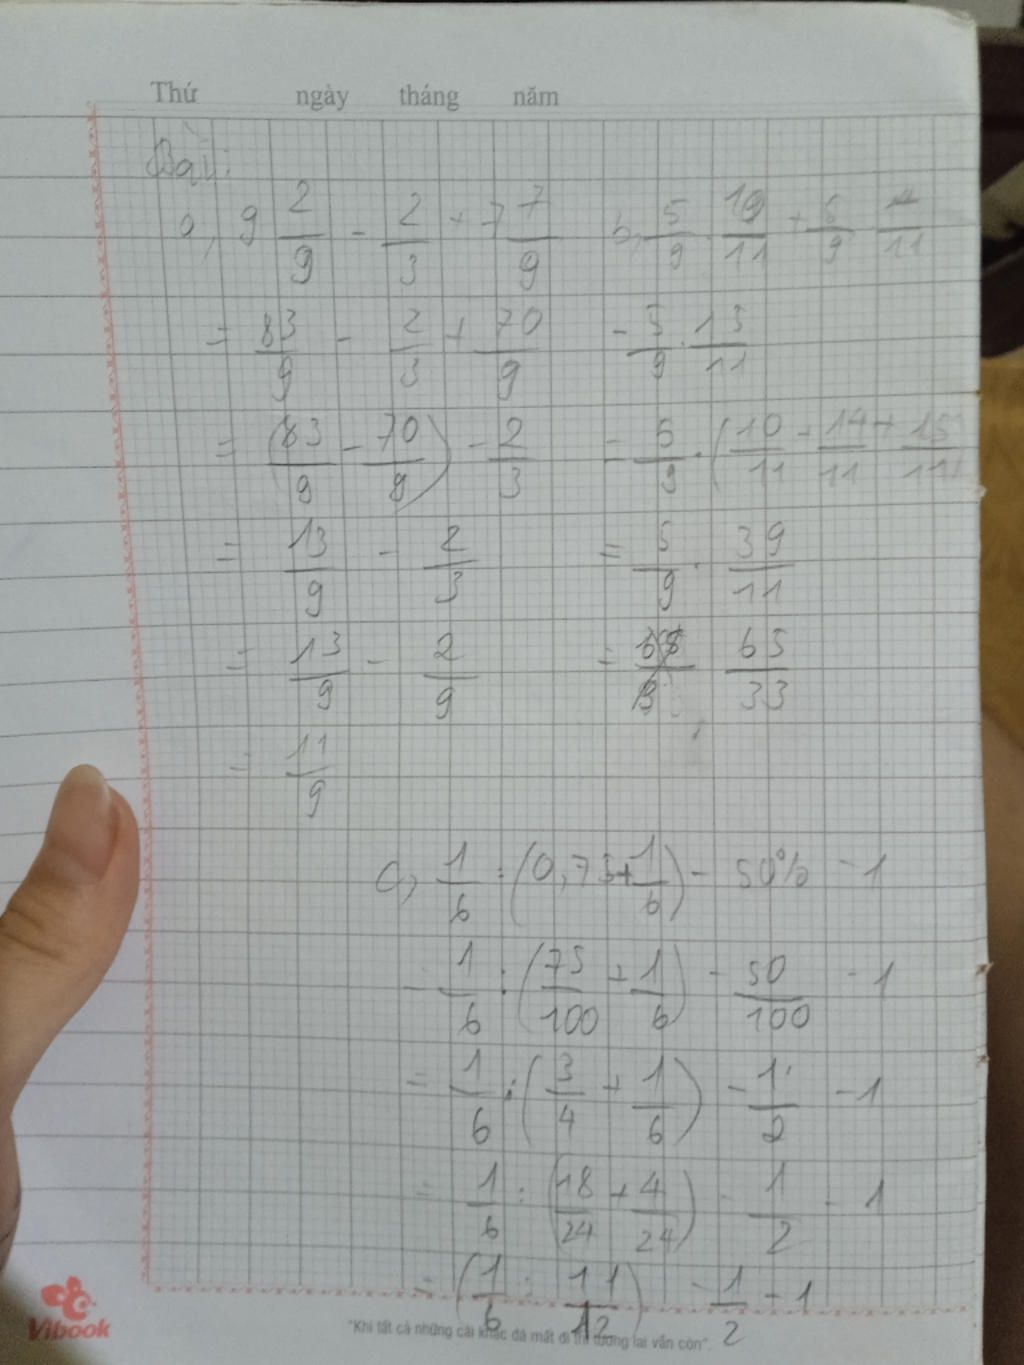 Thứ ngày tháng năm
Bài:
a, 9 2/9 - 2/3 + 7 7/9
= 83/9 - 2/3 + 70/9
= (83/9 - 70/9) - 2/3
= 13/9 - 2/3
= 13/9 - 2/9
= 11/9
b, 5/9 . 10/11 + 5/9 . 14/11
- 5/9 . 15/11
= 5/9 . (10/11 + 14/11 + 15/11)
= 5/9 . 39/11
= 65/33
c, 1/6 : (0,75 + 1/6) - 50% - 1
= 1/6 : (75/100 + 1/6) - 50/100 - 1
= 1/6 : (3/4 + 1/6) - 1/2 - 1
= 1/6 : (18/24 + 4/24) - 1/2 - 1
= (1/6 : 11/12) - 1/2 - 1
Vibook
"Khi tất cả những cái khác đã mất đi thì tương lai vẫn còn".